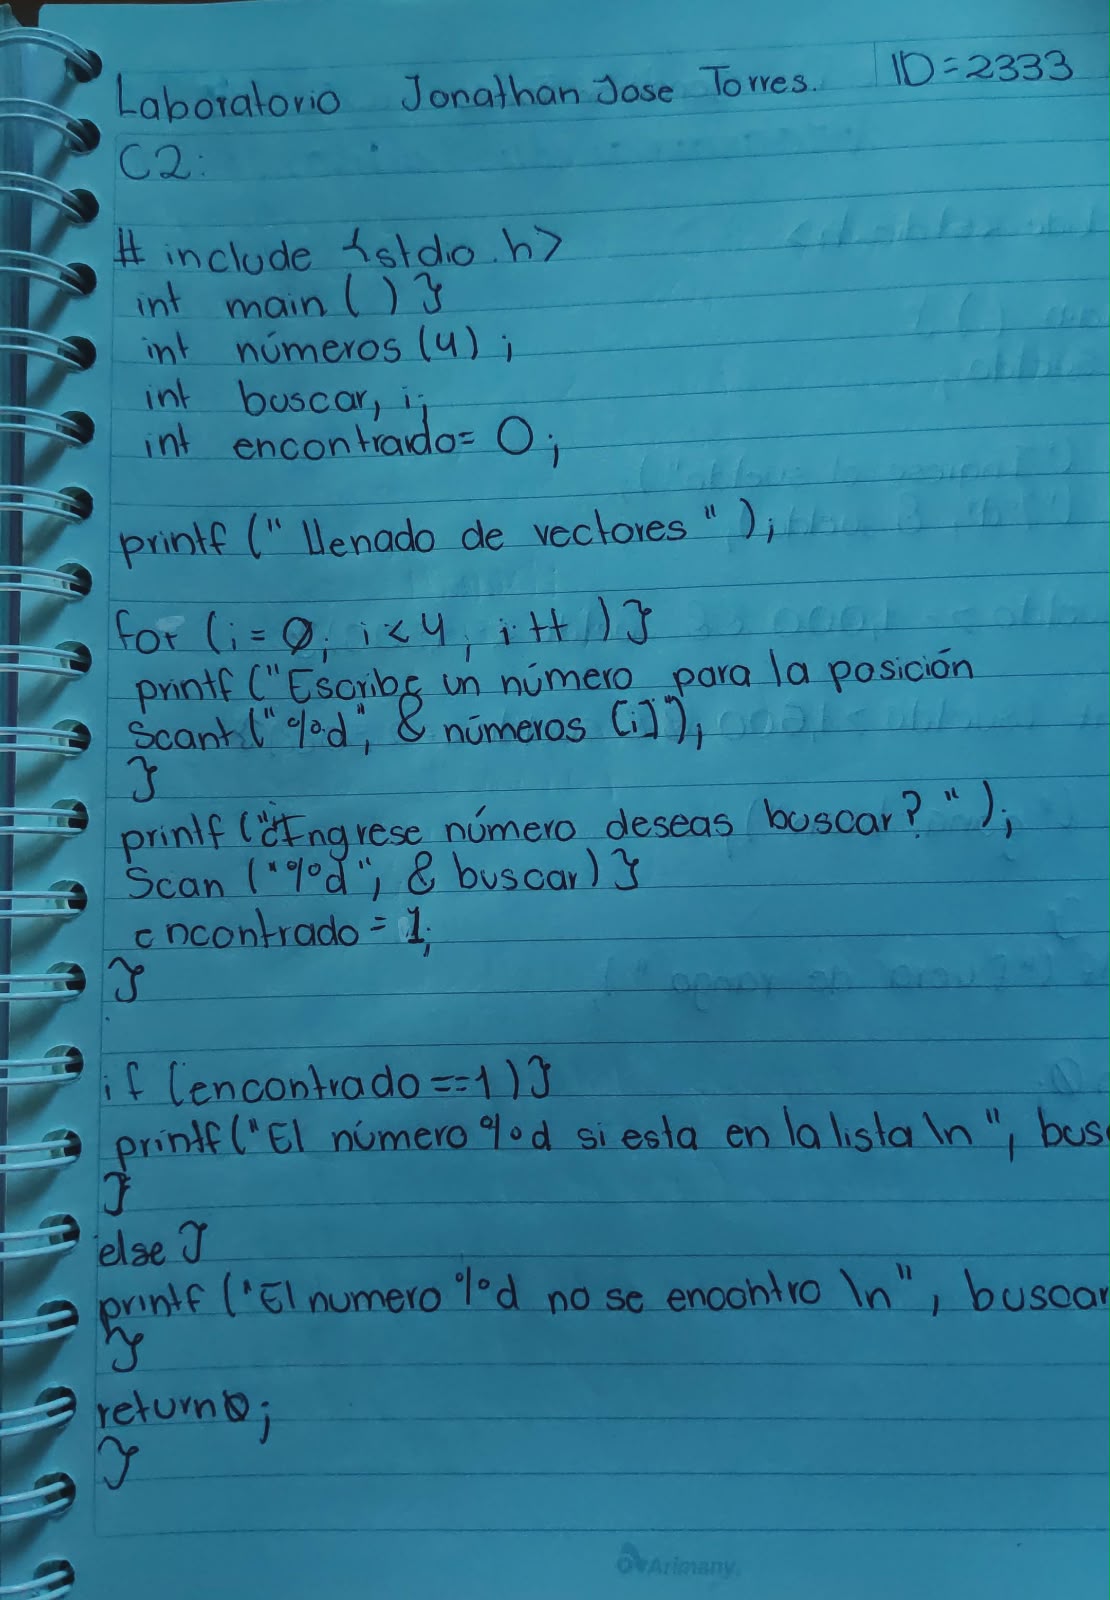 Laboratorio Jonathan Jose Torres. ID=2333
C2:
# include {stdio.h>
int main ( ) }
int números (4) ;
int buscar, i;
int encontrado= 0;
printf (" llenado de vectores " );
for (i = 0; i < 4 ; i ++ ) }
printf ("Escribe un número para la posición
Scanf ("%d", & números [i]");
}
printf ("¿Ingrese número deseas buscar? " );
Scan ("%d", & buscar) }
encontrado = 1;
}
if (encontrado ==1) }
printf ("El número %d si esta en la lista \n ", bus
}
else }
printf ("El numero %d no se encontro \n", buscar
}
return 0;
}
Arimany